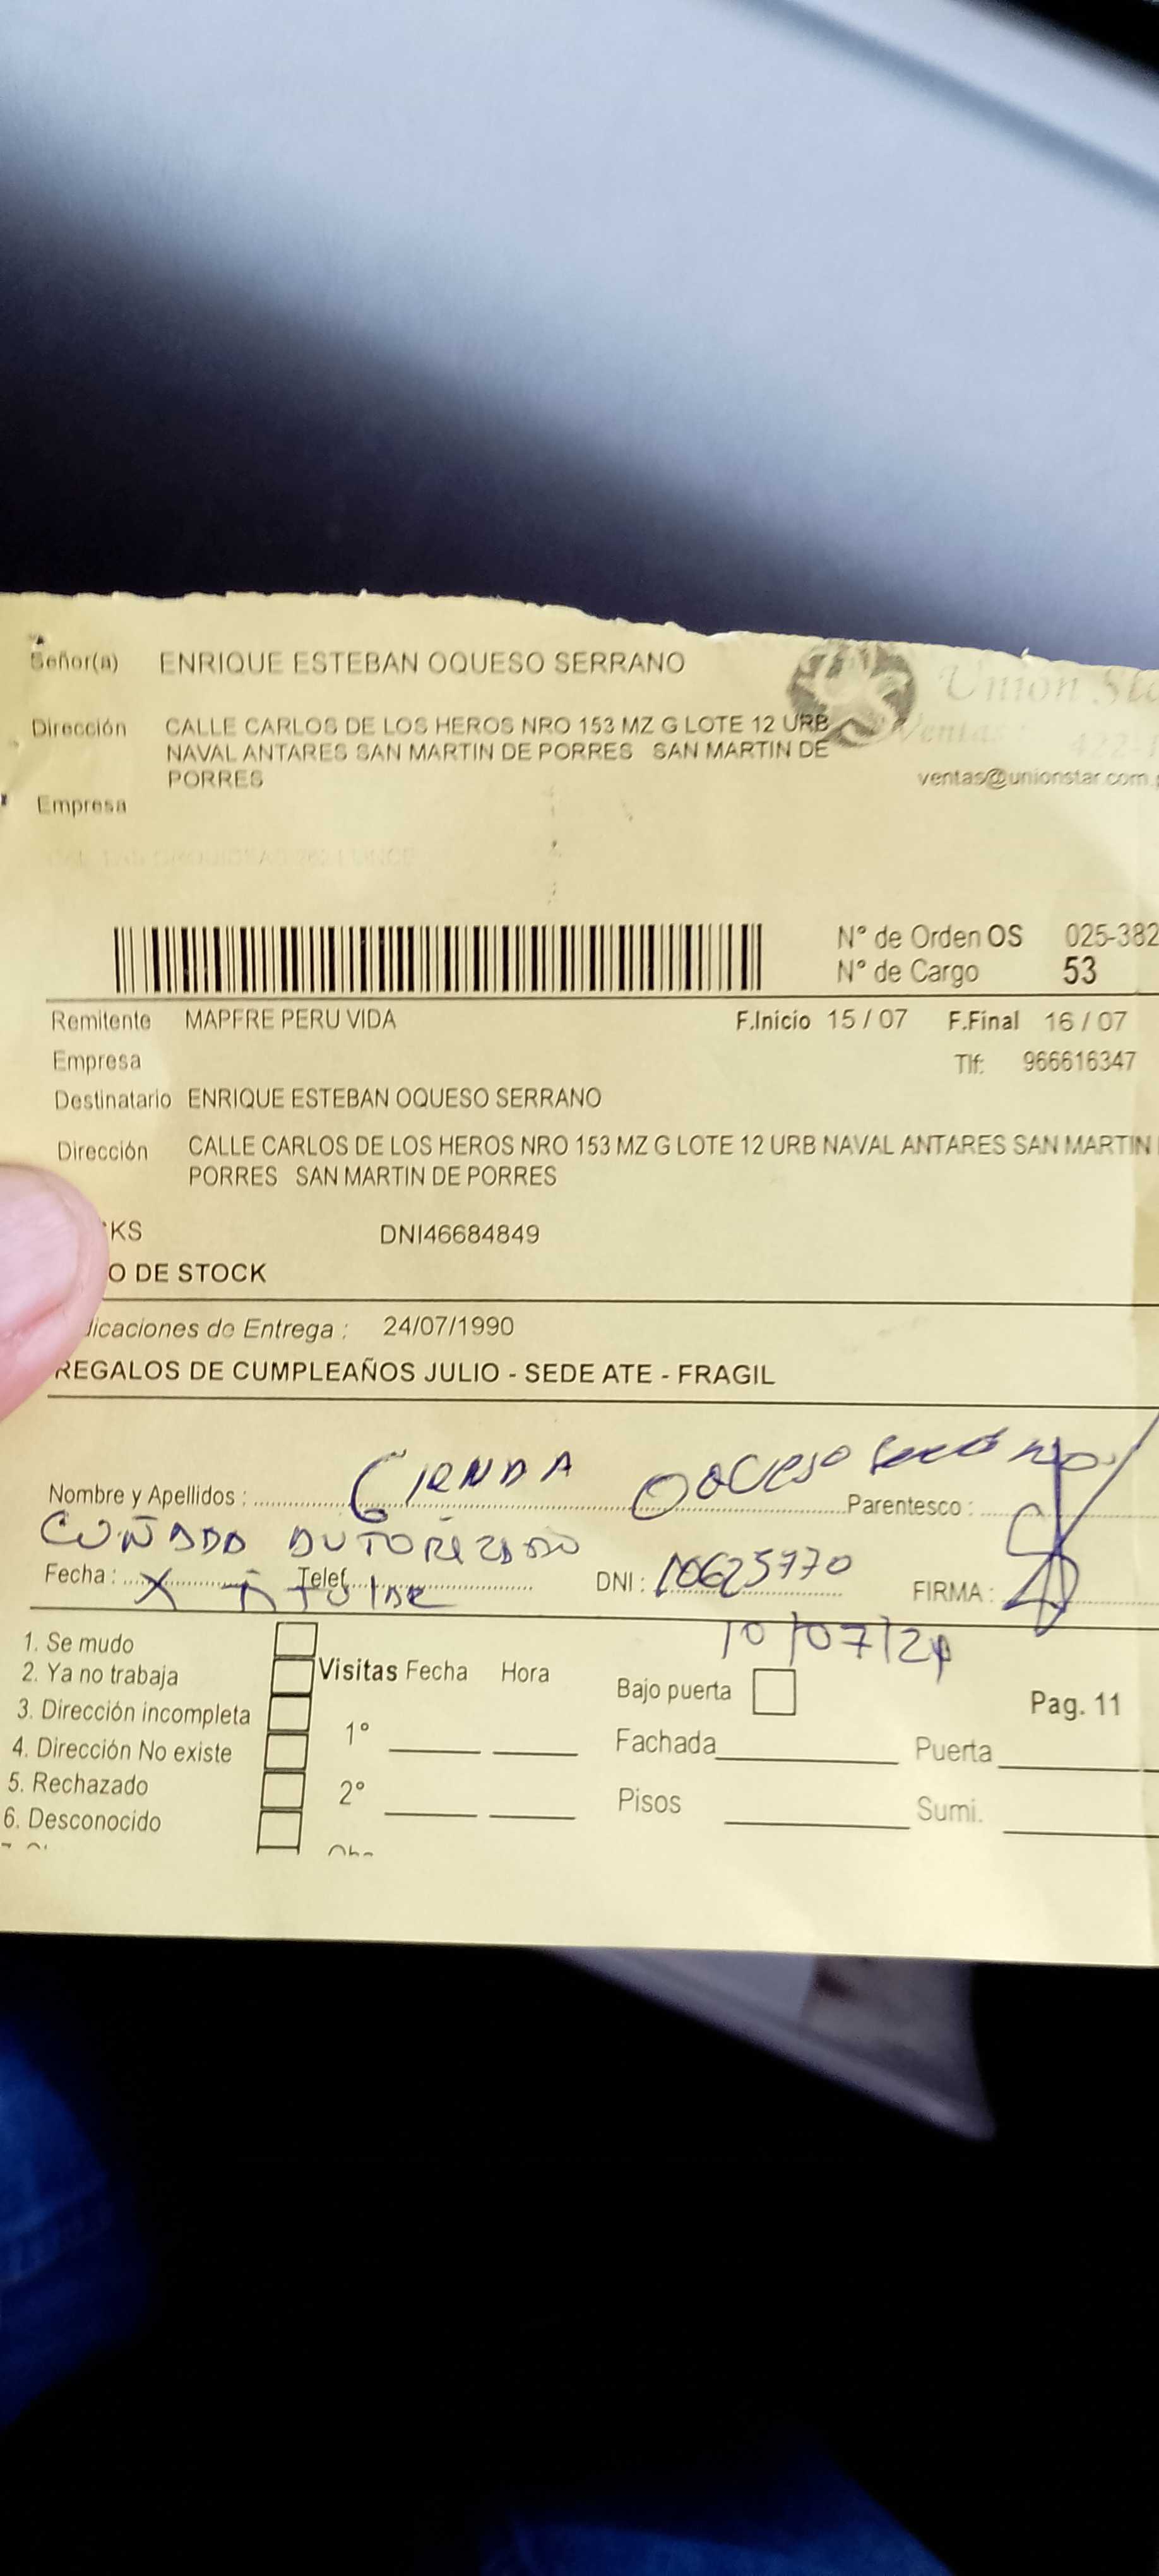 Señor(a) ENRIQUE ESTEBAN OQUESO SERRANO
Dirección CALLE CARLOS DE LOS HEROS NRO 153 MZ G LOTE 12 URB
NAVAL ANTARES SAN MARTIN DE PORRES SAN MARTIN DE
PORRES
Empresa
Union
Ventas
ventas@unionstar.com.
N° de Orden OS 025-382
N° de Cargo 53
Remitente MAPFRE PERU VIDA F.Inicio 15 / 07 F.Final 16 / 07
Empresa Tlf: 966616347
Destinatario ENRIQUE ESTEBAN OQUESO SERRANO
Dirección CALLE CARLOS DE LOS HEROS NRO 153 MZ G LOTE 12 URB NAVAL ANTARES SAN MARTIN
PORRES SAN MARTIN DE PORRES
KS DNI46684849
O DE STOCK
dicaciones de Entrega : 24/07/1990
REGALOS DE CUMPLEAÑOS JULIO - SEDE ATE - FRAGIL
Nombre y Apellidos : Oqueso Parentesco :
CUÑADA
Fecha : X Telef. DNI : 10625770 FIRMA :
10/07/24
1. Se mudo
2. Ya no trabaja
3. Dirección incompleta
4. Dirección No existe
5. Rechazado
6. Desconocido
Visitas Fecha Hora
1°
2°
Bajo puerta
Fachada Puerta
Pisos Sumi.
Pag. 11